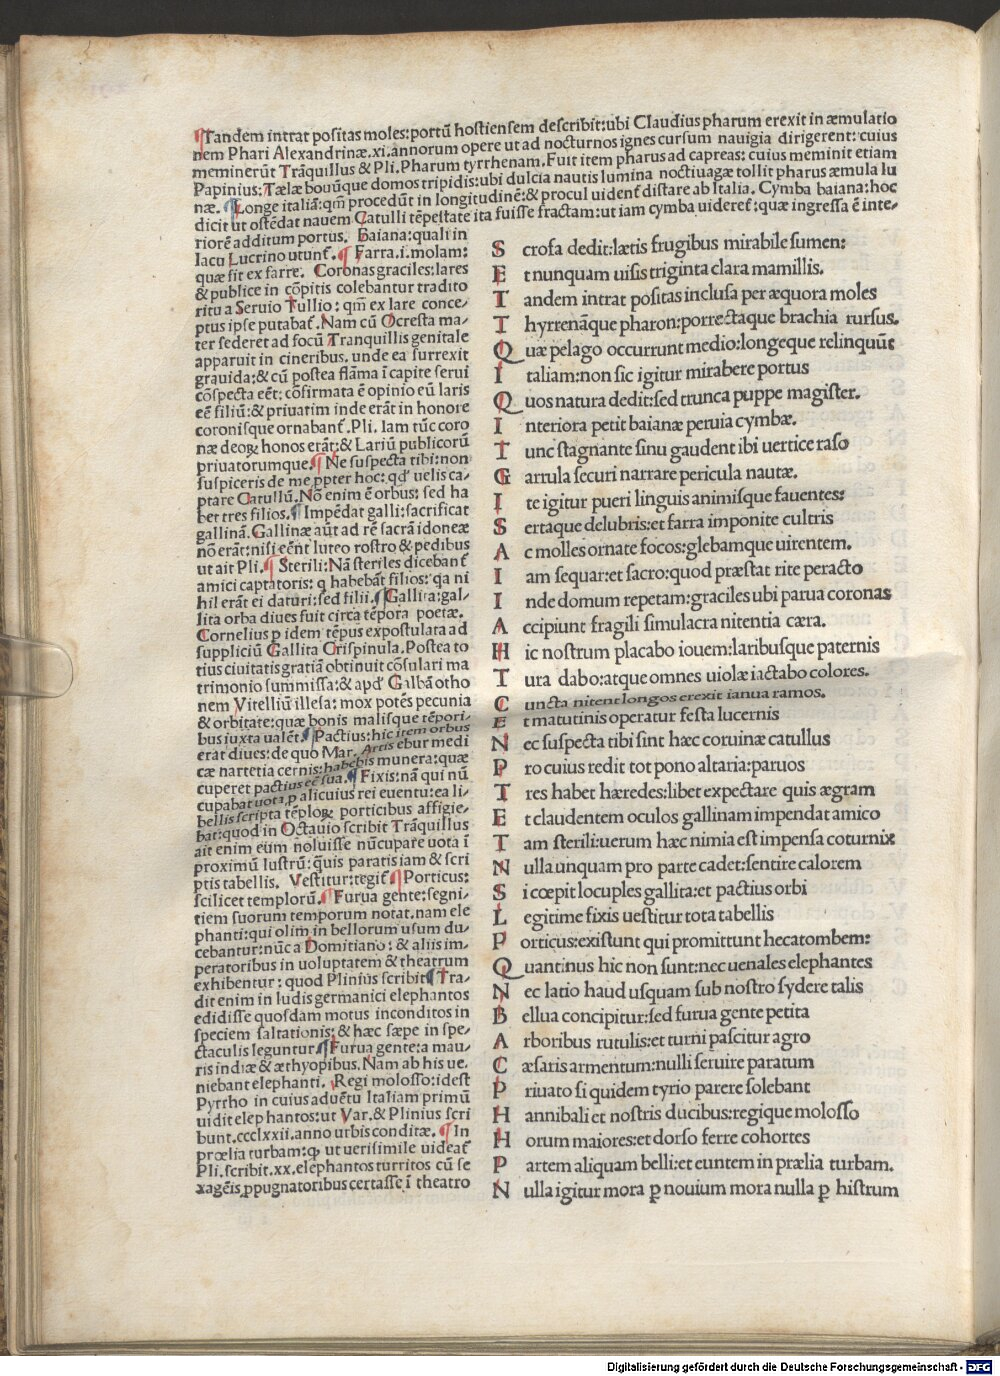 ¶Tandem intrat positas moles:portū hostiensem describit:ubi Claudius pharum erexit in æmulatio
nem Phari Alexandrinæ.xi.annorum opere ut ad nocturnos ignes cursum nauigia dirigerent: cuius
meminerūt Trāquillus & Pli.Pharum tyrrhenam.Fuit item pharus ad capreas: cuius meminit etiam
Papinius:Tælæ bouūque domos tripidis:ubi dulcia nautis lumina noctiuagæ tollit pharus æmula lu
næ.¶Longe italiā:qm̄ procedūt in longitudinē:& procul uident̄ distare ab Italia. Cymba baiana:hoc
dicit ut ostēdat nauem Catulli tēpestate ita fuisse fractam:ut iam cymba uideret̄:quæ ingressa ē inte/
riorē additum portus. Baiana:quali in
lacu Lucrino utunt̄.¶Farra.i.molam:
quæ fit ex farre. Coronas graciles:lares
& publice in cōpitis colebantur tradito
ritu a Seruio Tullio: qm̄ ex lare conce/
ptus ipse putabat̄.Nam cū Ocresta ma/
ter sederet ad focū Tranquillis genitale
apparuit in cineribus. unde ea surrexit
grauida:& cū postea flāma ī capite serui
cōspecta eēt: cōfirmata ē opinio eū laris
eē filiū:& priuatim inde erāt in honore
coronisque ornabant̄.Pli. Iam tūc coro
næ deoꝝ honos erāt:& Lariū publicorū
priuatorumque.¶Ne suspecta tibi:non
suspiceris de me ꝓpter hoc: qđ uelis ca/
ptare Catullū.Nō enim ē orbus: sed ha
bet tres filios.¶Impēdat galli:sacrificat
gallinā.Gallinæ aūt ad rē sacrā idoneæ
nō erāt:nisi eēnt luteo rostro & pedibus
ut ait Pli.¶Sterili:Nā steriles dicebant̄
amici captatoris: q habebāt filios: qa ni
hil erāt ei daturi:sed filii.¶Gallita:gal/
lita orba diues fuit circa tēpora poetæ.
Cornelius p idem tēpus expostulata ad
suppliciū Gallita Crispinula. Postea to
tius ciuitatis gratiā obtinuit cōsulari ma
trimonio summissa:& apđ Galbā otho
nem Vitelliū illesa: mox potēs pecunia
& orbitate:quæ bonis malisque tēpori/
bus iuxta ualēt.¶Pactius:hic item orbus
erat diues:de quo Mar. Artis ebur medi
cæ nartetia cernis:habebis munera:quæ
cuperet pactius eē sua.¶Fixis:nā qui nū
cupabat uota p alicuius rei euentu:ea li/
bellis scripta tēploꝝ porticibus affigie/
bat:quod in Octauio scribit Trāquillus
ait enim eum noluisse nūcupare uota ī
proximū lustrū:q̄uis paratis iam & scri
ptis tabellis. Vestitur:tegit̄¶Porticus:
scilicet templorū.¶Furua gente:segni/
tiem suorum temporum notat.nam ele
phanti:qui olim in bellorum usum du/
cebantur:nūc a Domitiano: & aliis im/
peratoribus in uoluptatem & theatrum
exhibentur: quod Plinius scribit¶Tra/
dit enim in ludis germanici elephantos
edidisse quosdam motus inconditos in
speciem saltationis:& hæc sæpe in spe/
ctaculis leguntur¶Furua gente:a mau/
ris indiæ & æthyopibus.Nam ab his ue.
niebant elephanti. Regi molosso:idest
Pyrrho in cuius aduētu Italiam primū
uidit elephantos:ut Var.& Plinius scri
bunt.ccclxxii.anno urbis conditæ.¶In
prœlia turbam:ꝙ ut uerisimile uideat̄
Pli.scribit.xx.elephantos turritos cū se
xagēis ꝓpugnatoribus certasse ī theatro
S crofa dedit:lætis frugibus mirabile sumen:
E t nunquam uisis triginta clara mamillis.
T andem intrat positas inclusa per æquora moles
T hyrrenāque pharon:porrectaque brachia rursus.
Q uæ pelago occurrunt medio:longeque relinquūt
I taliam:non sic igitur mirabere portus
Q uos natura dedit:sed trunca puppe magister.
I nteriora petit baianæ peruia cymbæ.
T unc stagnante sinu gaudent ibi uertice raso
G arrula securi narrare pericula nautæ.
I te igitur pueri linguis animisque fauentes:
S ertaque delubris:et farra imponite cultris
A c molles ornate focos:glebamque uirentem.
I am sequar:et sacro:quod præstat rite peracto
I nde domum repetam:graciles ubi parua coronas
A ccipiunt fragili simulacra nitentia cæra.
H ic nostrum placabo iouem:laribusque paternis
T ura dabo:atque omnes uiolæ iactabo colores.
C uncta nitent longos erexit ianua ramos.
E t matutinis operatur festa lucernis
N ec suspecta tibi sint hæc coruinæ catullus
P ro cuius redit tot pono altaria:paruos
T res habet hæredes:libet expectare quis ægram
E t claudentem oculos gallinam impendat amico
T am sterili:uerum hæc nimia est impensa coturnix
N ulla unquam pro parte cadet:sentire calorem
S i cœpit locuples gallita:et pactius orbi
L egitime fixis uestitur tota tabellis
P orticus:existunt qui promittunt hecatombem:
Q uantinus hic non sunt:nec uenales elephantes
N ec latio haud usquam sub nostro sydere talis
B ellua concipitur:sed furua gente petita
A rboribus rutulis:et turni pascitur agro
C æsaris armentum:nulli seruire paratum
P riuato si quidem tyrio parere solebant
H annibali et nostris ducibus:regique molosso
H orum maiores:et dorso ferre cohortes
P artem aliquam belli:et euntem in prælia turbam.
N ulla igitur mora ꝑ nouium mora nulla ꝑ histrum
Digitalisierung gefördert durch die Deutsche Forschungsgemeinschaft - DFG